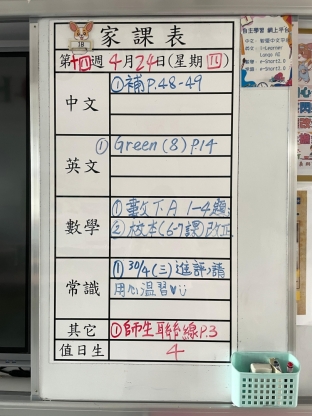 18
家課表
第十四週 4月24日(星期四)
中文
①補P.48-49
英文
① Green (8) P.14
數學
① 數下A 1-4題
② 放本(6-7課)改正
常識
① 30/4 (三) 進評,請
用心溫習♥
其它
①師生聯絡線P.3
值日生
4
自主學習 網上平台